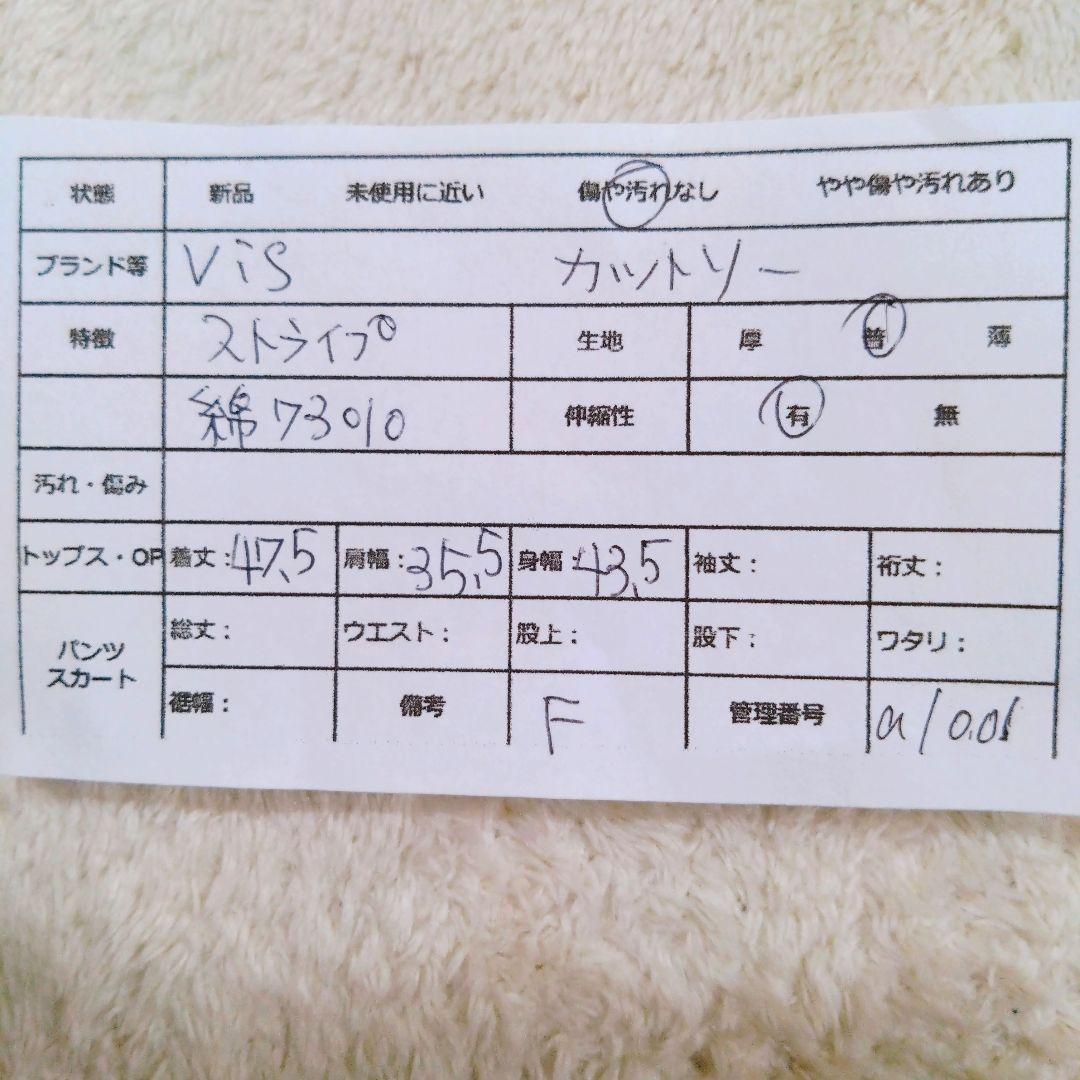 状態 新品 未使用に近い 傷や汚れなし やや傷や汚れあり
ブランド等 ViS カットソー
特徴 ストライプ 生地 厚 普 薄
綿73% 伸縮性 有 無
汚れ・傷み
トップス・OP 着丈:47.5 肩幅:35.5 身幅:43.5 袖丈: 裄丈:
パンツ スカート 総丈: ウエスト: 股上: 股下: ワタリ:
裾幅: 備考 F 管理番号 a/0.01